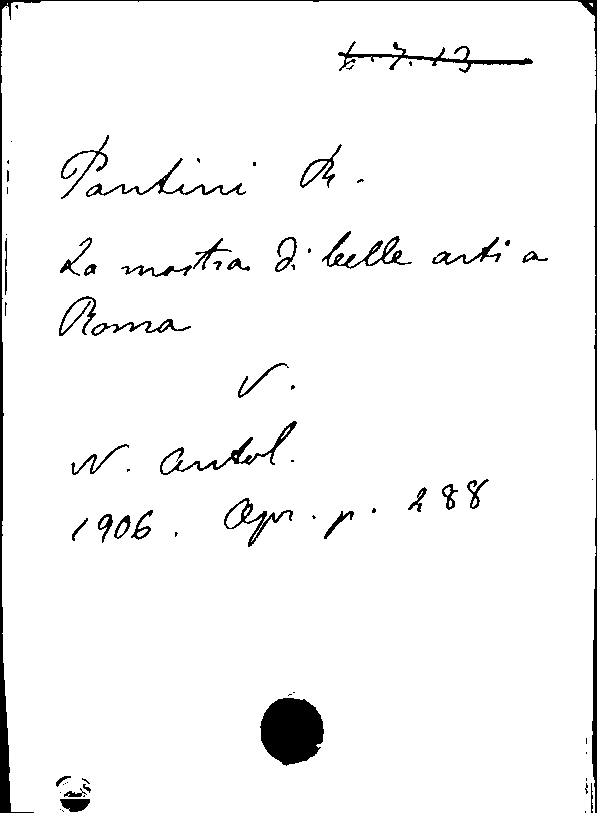 6.7.13
Pantini R.
La mostra di belle arti a
Roma
V.
N. Antol.
1906. Apr. p. 288